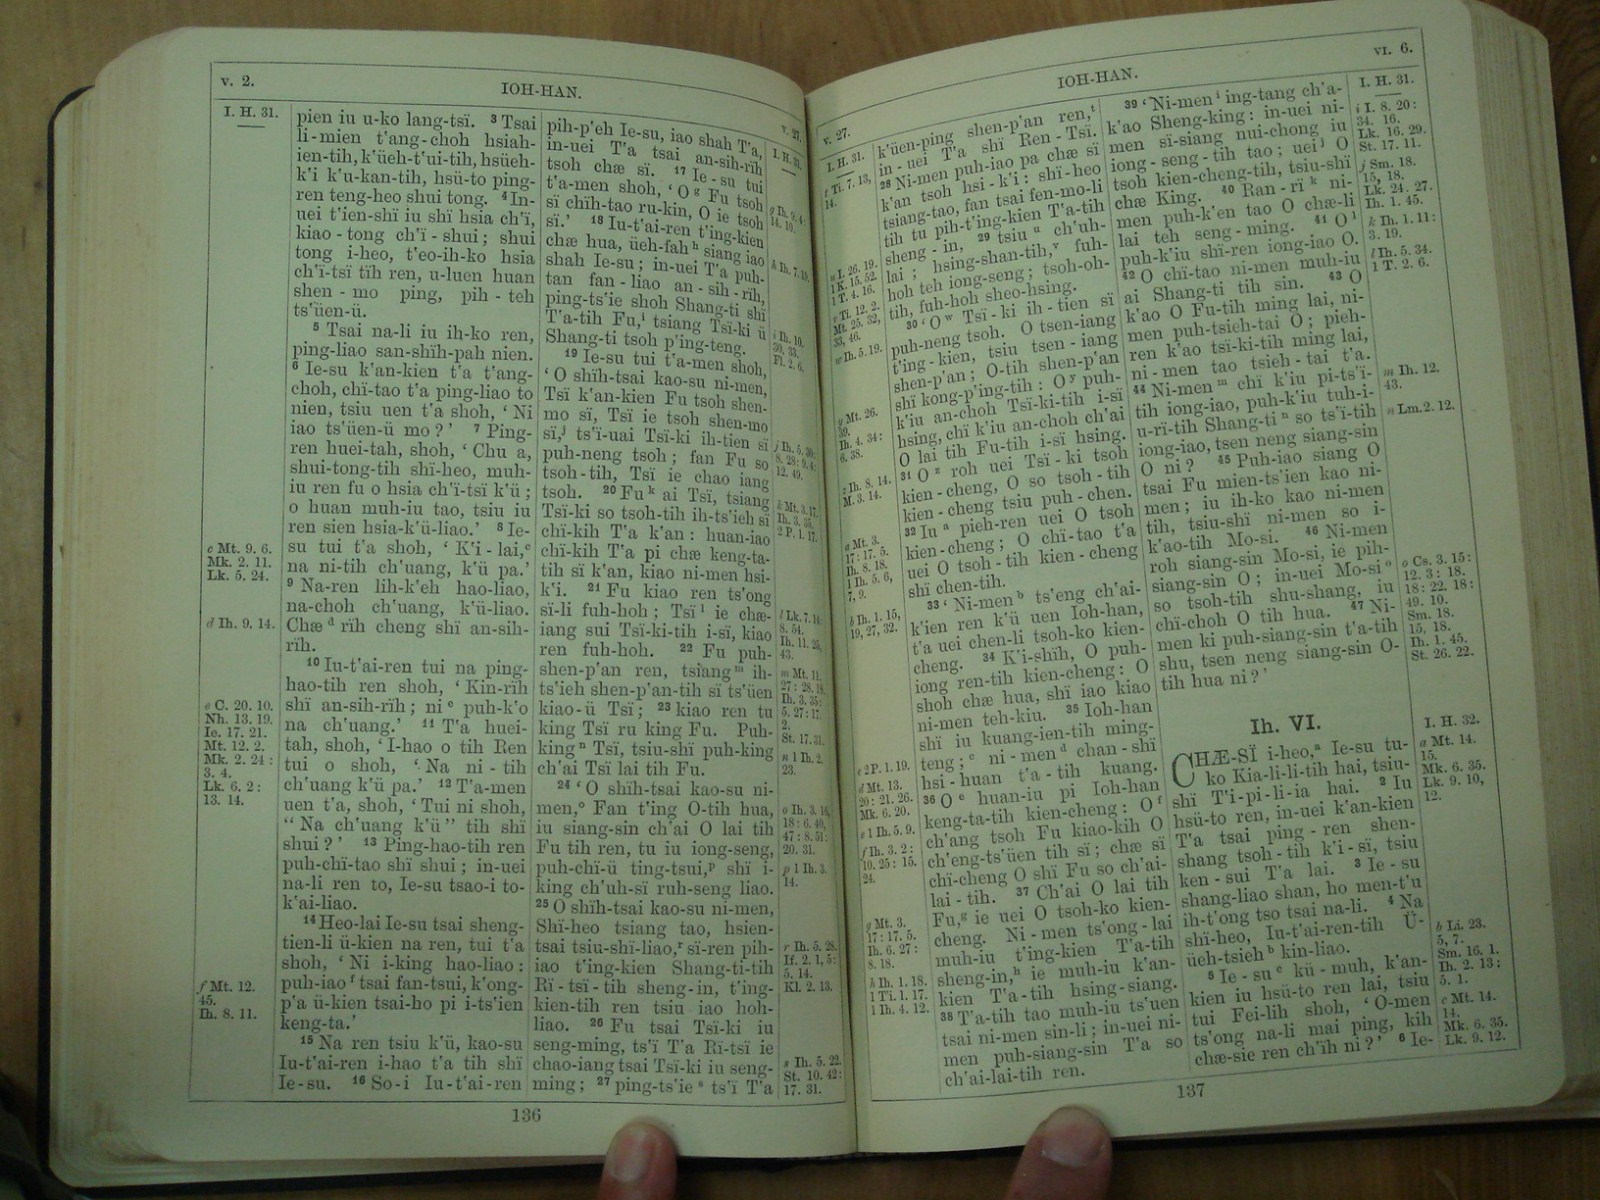 v. 2.
IOH-HAN.
v. 27.
I. H. 31.
pien iu u-ko lang-tsï. 3 Tsai
li-mien t'ang-choh hsiah-
ien-tih, k'üeh-t'ui-tih, hsüeh-
k'i k'u-kan-tih, hsü-to ping-
ren teng-heo shui tong. 4 In-
uei t'ien-shï iu shï hsia ch'ï,
kiao-tong ch'ï-shui; shui
tong i-heo, t'eo-ih-ko hsia
ch'ï-tsï tïh ren, u-luen huan
shen-mo ping, pih-teh
ts'üen-ü.
5 Tsai na-li iu ih-ko ren,
ping-liao san-shïh-pah nien.
6 Ie-su k'an-kien t'a t'ang-
choh, chï-tao t'a ping-liao to
nien, tsiu uen t'a shoh, ' Ni
iao ts'üen-ü mo?' 7 Ping-
ren huei-tah, shoh, ' Chu a,
shui-tong-tih shï-heo, muh-
iu ren fu o hsia ch'ï-tsï k'ü;
o huan muh-iu tao, tsiu iu
ren sien hsia-k'ü-liao.' 8 Ie-
su tui t'a shoh, ' K'i-lai,c
na ni-tih ch'uang, k'ü pa.'
9 Na-ren lih-k'eh hao-liao,
na-choh ch'uang, k'ü-liao.
Chæ d rïh cheng shï an-sih-
rïh.
10 Iu-t'ai-ren tui na ping-
hao-tih ren shoh, ' Kin-rïh
shï an-sih-rïh; ni e puh-k'o
na ch'uang.' 11 T'a huei-
tah, shoh, ' I-hao o tih Ren
tui o shoh, ' Na ni-tih
ch'uang k'ü pa.' 12 T'a-men
uen t'a, shoh, ' Tui ni shoh,
" Na ch'uang k'ü" tih shï
shui?' 13 Ping-hao-tih ren
puh-chï-tao shï shui; in-uei
na-li ren to, Ie-su tsao-i to-
k'ai-liao.
14 Heo-lai Ie-su tsai sheng-
tien-li ü-kien na ren, tui t'a
shoh, ' Ni i-king hao-liao:
puh-iao f tsai fan-tsui, k'ong-
p'a ü-kien tsai-ho pi i-ts'ien
keng-ta.'
15 Na ren tsiu k'ü, kao-su
Iu-t'ai-ren i-hao t'a tih shï
Ie-su. 16 So-i Iu-t'ai-ren
c Mt. 9. 6.
Mk. 2. 11.
Lk. 5. 24.
d Ih. 9. 14.
e C. 20. 10.
Nh. 13. 19.
Ie. 17. 21.
Mt. 12. 2.
Mk. 2. 24:
3. 4.
Lk. 6. 2:
13. 14.
f Mt. 12.
45.
Ih. 8. 11.
pih-p'eh Ie-su, iao shah T'a,
in-uei T'a tsai an-sih-rïh
tsoh chæ sï. 17 Ie-su tui
t'a-men shoh, ' O g Fu tsoh
sï chïh-tao ru-kin, O ie tsoh
sï.' 18 Iu-t'ai-ren t'ing-kien
chæ hua, üeh-fah h siang iao
shah Ie-su; in-uei T'a puh-
tan fan-liao an-sih-rïh,
ping-ts'ie shoh Shang-ti shï
T'a-tih Fu,i tsiang Tsï-ki ü
Shang-ti tsoh p'ing-teng.
19 Ie-su tui t'a-men shoh,
' O shïh-tsai kao-su ni-men,
Tsï k'an-kien Fu tsoh shen-
mo sï, Tsï ie tsoh shen-mo
sï,j ts'ï-uai Tsï-ki ih-tien sï
puh-neng tsoh; fan Fu so
tsoh-tih, Tsï ie chao iang
tsoh. 20 Fu k ai Tsï, tsiang
Tsï-ki so tsoh-tih ih-ts'ieh sï
chï-kih T'a k'an: huan-iao
chï-kih T'a pi chæ keng-ta-
tih sï k'an, kiao ni-men hsi-
k'i. 21 Fu kiao ren ts'ong
sï-li fuh-hoh; Tsï l ie chæ-
iang sui Tsï-ki-tih i-sï, kiao
ren fuh-hoh. 22 Fu puh-
shen-p'an ren, tsiang m ih-
ts'ieh shen-p'an-tih sï ts'üen
kiao-ü Tsï; 23 kiao ren tu
king Tsï ru king Fu. Puh-
king n Tsï, tsiu-shï puh-king
ch'ai Tsï lai tih Fu.
24 ' O shïh-tsai kao-su ni-
men,o Fan t'ing O-tih hua,
iu siang-sin ch'ai O lai tih
Fu tih ren, tu iu iong-seng,
puh-chï-ü ting-tsui,p shï i-
king ch'uh-sï ruh-seng liao.
25 O shïh-tsai kao-su ni-men,
Shï-heo tsiang tao, hsien-
tsai tsiu-shï-liao,r sï-ren pih-
iao t'ing-kien Shang-ti-tih
Rï-tsï-tih sheng-in, t'ing-
kien-tih ren tsiu iao hoh-
liao. 26 Fu tsai Tsï-ki iu
seng-ming, ts'ï T'a Rï-tsï ie
chao-iang tsai Tsï-ki iu seng-
ming; 27 ping-ts'ie s ts'ï T'a
I. H. 31.
g Ih. 9. 4:
14. 10.
h Ih. 7. 19.
i Ih. 10.
30, 33.
Fl. 2. 6.
j Ih. 5. 30:
8. 28: 9. 4:
12. 49.
k Mt. 3. 17.
Ih. 3. 35.
2 P. 1. 17.
l Lk. 7. 14:
8. 54.
Ih. 11. 25,
43.
m Mt. 11.
27: 28. 18.
Ih. 3. 35:
5. 27: 17.
2.
St. 17. 31.
n 1 Ih. 2.
23.
o Ih. 3. 16,
18: 6. 40,
47: 8. 51:
20. 31.
p 1 Ih. 3.
14.
r Ih. 5. 28.
If. 2. 1, 5:
5. 14.
Kl. 2. 13.
s Ih. 5. 22.
St. 10. 42:
17. 31.
136
v. 27.
IOH-HAN.
VI. 6.
I. H. 31.
t Ti. 7. 13,
14.
u I. 26. 19.
1 K. 15. 52.
1 T. 4. 16.
v Ti. 12. 2.
Mt. 25. 32,
33, 46.
w Ih. 5. 19.
y Mt. 26.
39.
Ih. 4. 34:
6. 38.
z Ih. 8. 14.
M. 3. 14.
a Mt. 3.
17: 17. 5.
Ih. 8. 18.
1 Ih. 5. 6,
7, 9.
b Ih. 1. 15,
19, 27, 32.
c 2 P. 1. 19.
d Mt. 13.
20: 21. 26.
Mk. 6. 20.
e 1 Ih. 5. 9.
f Ih. 3. 2:
10. 25: 15.
24.
g Mt. 3.
17: 17. 5.
Ih. 6. 27:
8. 18.
h Ih. 1. 18.
1 Ti. 1. 17.
1 Ih. 4. 12.
k'üen-ping shen-p'an ren,t
in-uei T'a shï Ren-Tsï.
28 Ni-men puh-iao pa chæ sï
k'an tsoh hsi-k'i: shï-heo
tsiang-tao, fan tsai fen-mo-li
tih tu pih-t'ing-kien T'a-tih
sheng-in, 29 tsiu u ch'uh-
lai; hsing-shan-tih,v fuh-
hoh teh iong-seng; tsoh-oh-
tih, fuh-hoh sheo-hsing.
30 ' O w Tsï-ki ih-tien sï
puh-neng tsoh. O tsen-iang
t'ing-kien, tsiu tsen-iang
shen-p'an; O-tih shen-p'an
shï kong-p'ing-tih: O y puh-
k'iu an-choh Tsï-ki-tih i-sï
hsing, chï k'iu an-choh ch'ai
O lai tih Fu-tih i-sï hsing.
31 O z roh uei Tsï-ki tsoh
kien-cheng, O so tsoh-tih
kien-cheng tsiu puh-chen.
32 Iu a pieh-ren uei O tsoh
kien-cheng; O chï-tao t'a
uei O tsoh-tih kien-cheng
shï chen-tih.
33 ' Ni-men b ts'eng ch'ai-
k'ien ren k'ü uen Ioh-han,
t'a uei chen-li tsoh-ko kien-
cheng. 34 K'i-shïh, O puh-
iong ren-tih kien-cheng: O
shoh chæ hua, shï iao kiao
ni-men teh-kiu. 35 Ioh-han
shï iu kuang-ien-tih ming-
teng;c ni-men d chan-shï
hsi-huan t'a-tih kuang.
36 O e huan-iu pi Ioh-han
keng-ta-tih kien-cheng: O f
ch'ang tsoh Fu kiao-kih O
ch'eng-ts'üen tih sï; chæ sï
chï-cheng O shï Fu so ch'ai-
lai-tih. 37 Ch'ai O lai tih
Fu,g ie uei O tsoh-ko kien-
cheng. Ni-men ts'ong-lai
muh-iu t'ing-kien T'a-tih
sheng-in,h ie muh-iu k'an-
kien T'a-tih hsing-siang.
38 T'a-tih tao muh-iu ts'uen
tsai ni-men sin-li; in-uei ni-
men puh-siang-sin T'a so
ch'ai-lai-tih ren.
39 ' Ni-men i ing-tang ch'a-
k'ao Sheng-king: in-uei ni-
men sï-siang nui-chong iu
iong-seng-tih tao; uei j O
tsoh kien-cheng-tih, tsiu-shï
chæ King. 40 Ran-rï k ni-
men puh-k'en tao O chæ-li
lai teh seng-ming. 41 O l
puh-k'iu shï-ren iong-iao O.
42 O chï-tao ni-men muh-iu
ai Shang-ti tih sin. 43 O
k'ao O Fu-tih ming lai, ni-
men puh-tsieh-tai O; pieh-
ren k'ao tsï-ki-tih ming lai,
ni-men tao tsieh-tai t'a.
44 Ni-men m chï k'iu pi-ts'ï-
tih iong-iao, puh-k'iu tuh-i-
u-rï-tih Shang-ti n so ts'ï-tih
iong-iao, tsen neng siang-sin
O ni? 45 Puh-iao siang O
tsai Fu mien-ts'ien kao ni-
men; iu ih-ko kao ni-men
tih, tsiu-shï ni-men so i-
k'ao-tih Mo-si. 46 Ni-men
roh siang-sin Mo-si, ie pih-
siang-sin O; in-uei Mo-si o
so tsoh-tih shu-shang, iu
chï-choh O tih hua. 47 Ni-
men ki puh-siang-sin t'a-tih
shu, tsen neng siang-sin O-
tih hua ni?'
Ih. VI.
CHÆ-SÏ i-heo,a Ie-su tu-
ko Kia-li-li-tih hai, tsiu-
shï T'i-pi-li-ia hai. 2 Iu
hsü-to ren, in-uei k'an-kien
T'a tsai ping-ren shen-
shang tsoh-tih k'i-sï, tsiu
ken-sui T'a lai. 3 Ie-su
shang-liao shan, ho men-t'u
ih-t'ong tso tsai na-li. 4 Na
shï-heo, Iu-t'ai-ren-tih Ü-
üeh-tsieh b kin-liao.
5 Ie-su c kü-muh, k'an-
kien iu hsü-to ren lai, tsiu
tui Fei-lih shoh, ' O-men
ts'ong na-li mai ping, kih
chæ-sie ren ch'ïh ni?' 6 Ie-
I. H. 31.
i I. 8. 20:
34. 16.
Lk. 16. 29.
St. 17. 11.
j Sm. 18.
15, 18.
Lk. 24. 27.
Ih. 1. 45.
k Ih. 1. 11:
3. 19.
l Ih. 5. 34.
1 T. 2. 6.
m Ih. 12.
43.
n Lm. 2. 12.
o Cs. 3. 15:
12. 3: 18.
18: 22. 18:
49. 10.
Sm. 18.
15, 18.
Ih. 1. 45.
St. 26. 22.
I. H. 32.
a Mt. 14.
15.
Mk. 6. 35.
Lk. 9. 10,
12.
b Li. 23.
5, 7.
Sm. 16. 1.
Ih. 2. 13:
5. 1.
c Mt. 14.
14.
Mk. 6. 35.
Lk. 9. 12.
137